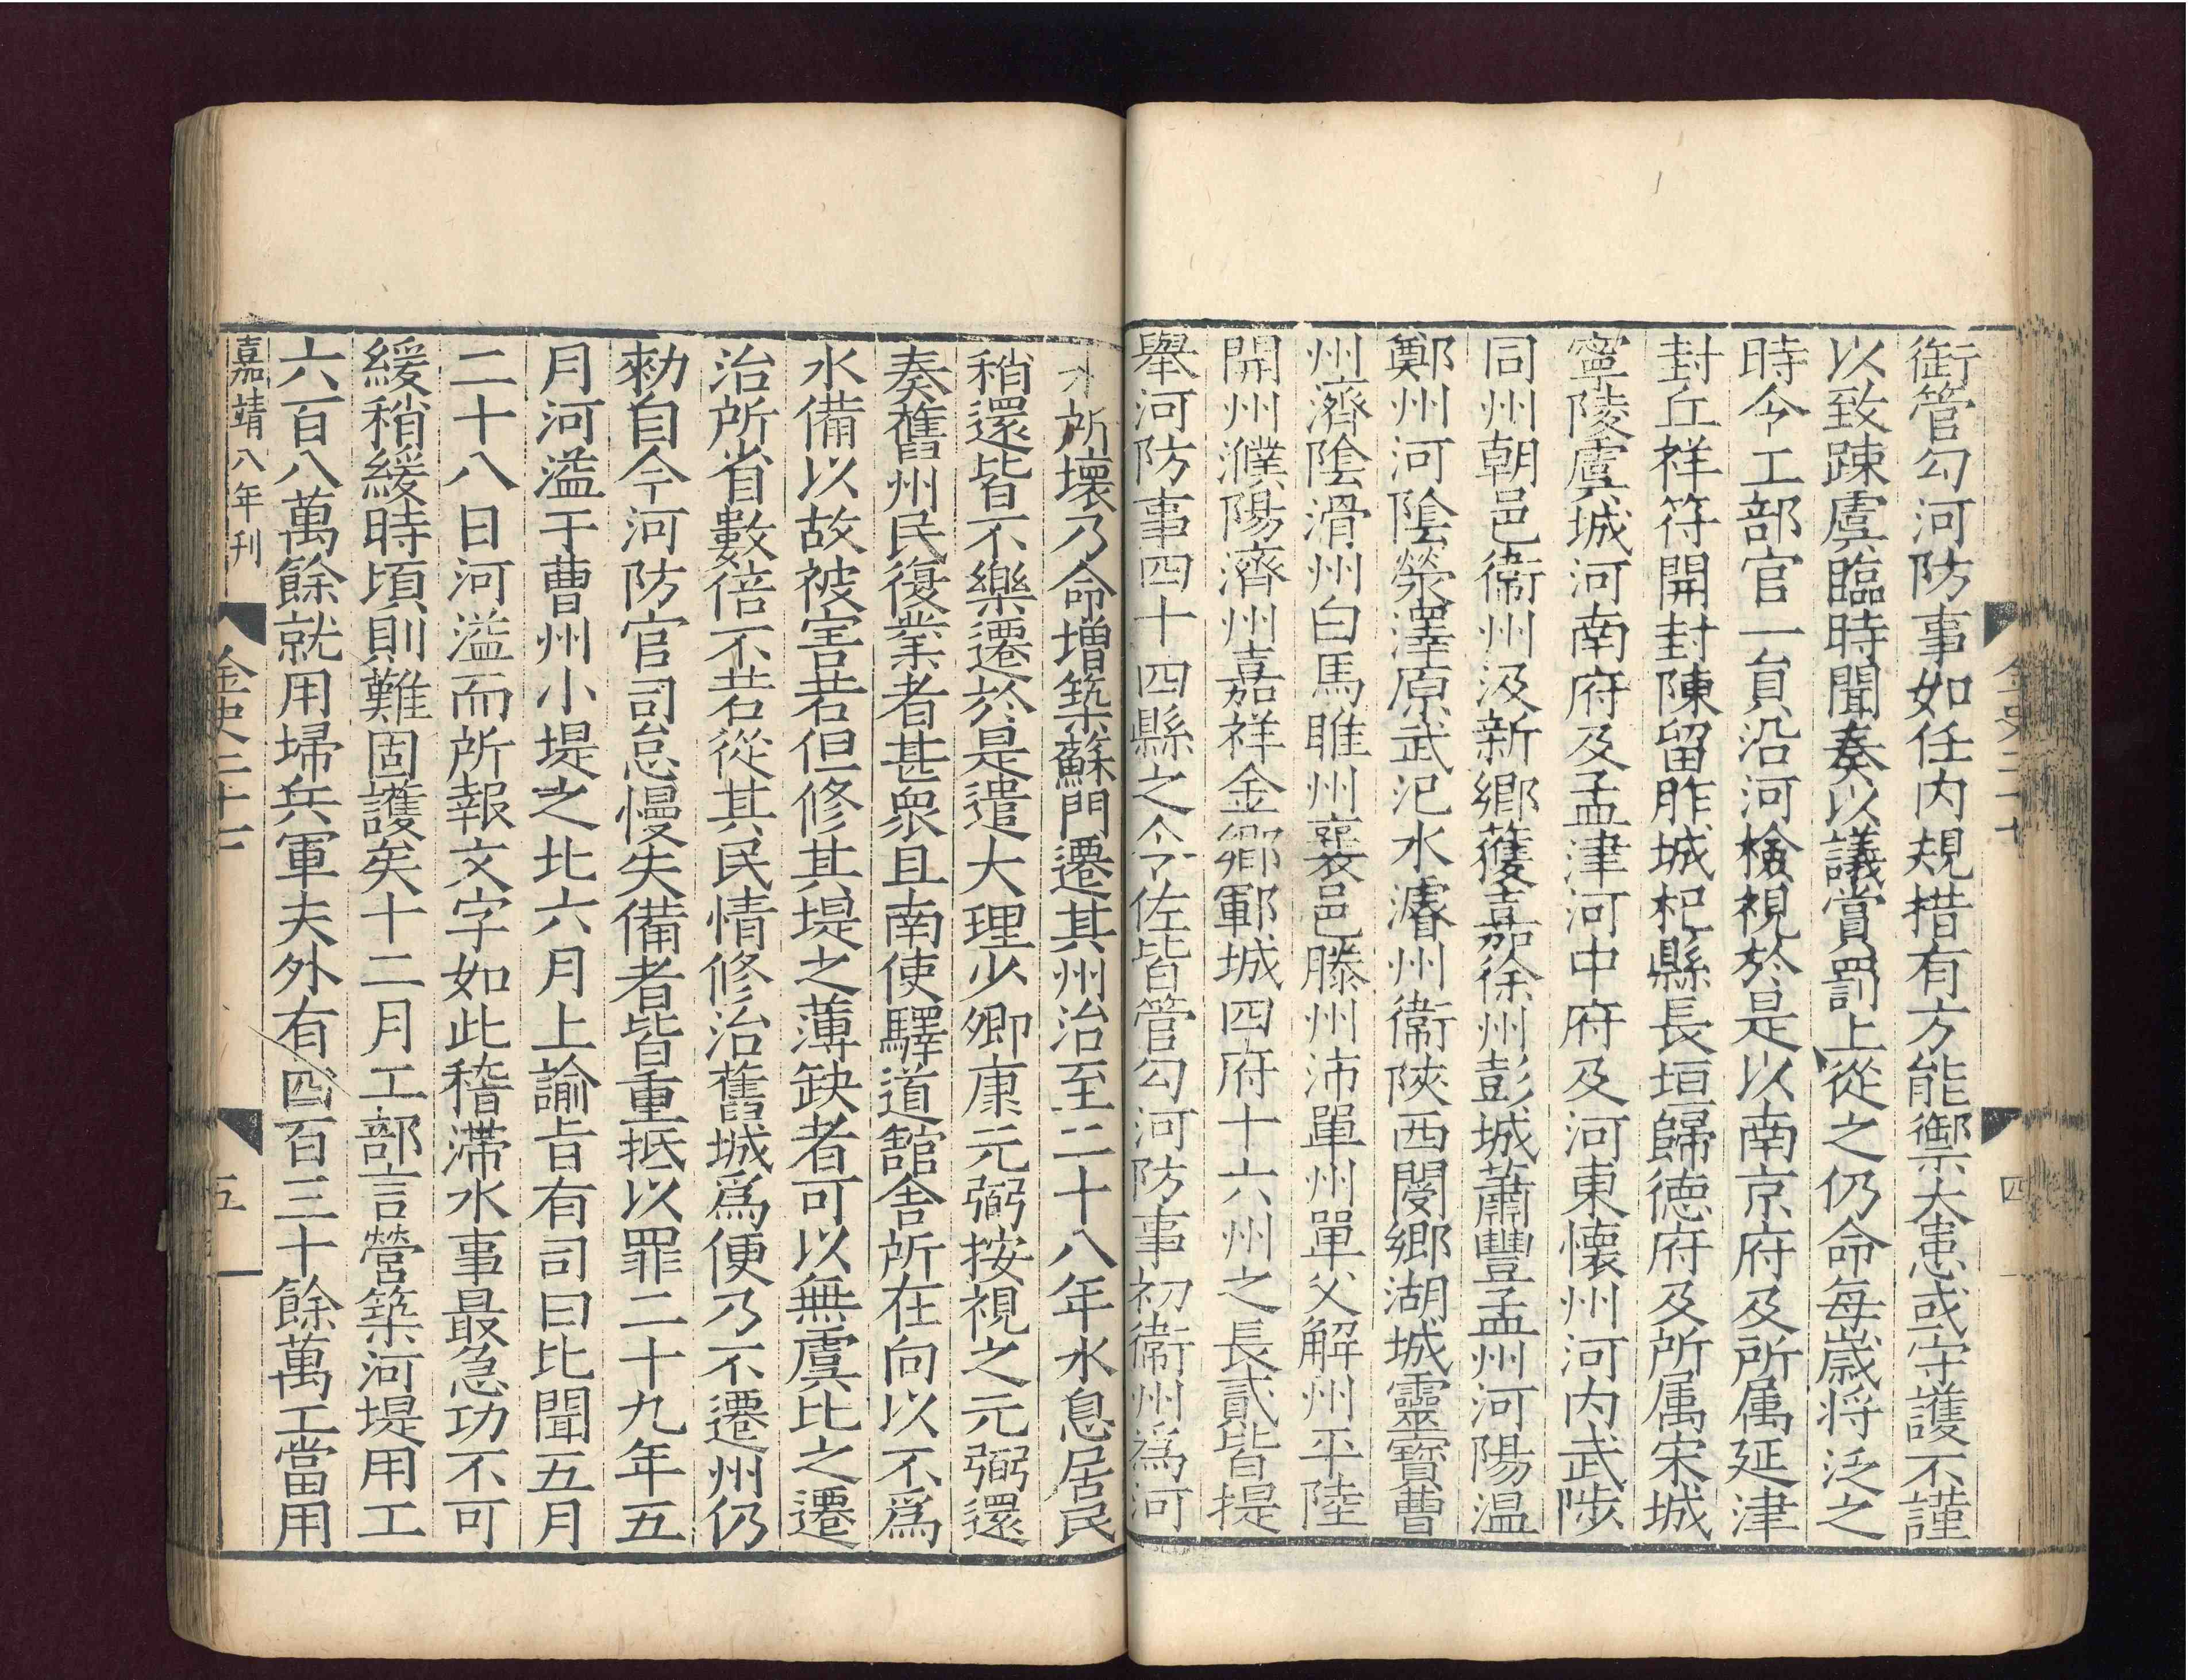 衙管勾河防事如任内規措有方能禦大患或守護不謹
以致踈虞臨時聞奏以議賞罰上從之仍命每歳将泛之
時令工部官一員沿河檢視於是以南京府及所属延津
封丘祥符開封陳留胙城杞縣長垣歸德府及所属宋城
寧陵虞城河南府及孟津河中府及河東懷州河内武陟
同州朝邑衞州汲新鄉獲嘉徐州彭城蕭豐孟州河陽温
鄭州河隂滎澤原武汜水濬州衞陝西閿鄉湖城靈寳曹
州濟隂滑州白馬睢州襄邑滕州沛單州單父解州平陸
開州濮陽濟州嘉祥金鄉鄆城四府十六州之長貳皆提
舉河防事四十四縣之令佐皆管勾河防事初衞州爲河
水所壞乃命增築蘇門遷其州治至二十八年水息居民
稍還皆不樂遷於是遣大理少卿康元弼按視之元弼還
奏舊州民復業者甚衆且南使驛道舘舎所在向以不爲
水備以故被害若但修其堤之薄缺者可以無虞比之遷
治所省數倍不若從其民情修治舊城爲便乃不遷州仍
勑自今河防官司怠慢失備者皆重抵以罪二十九年五
月河溢于曹州小堤之北六月上諭旨有司曰比聞五月
二十八日河溢而所報文字如此稽滯水事最急功不可
緩稍緩時頃則難固護矣十二月工部言營築河堤用工
六百八萬餘就用埽兵軍夫外有四百三十餘萬工當用
嘉靖八年刊
金史二十七
五